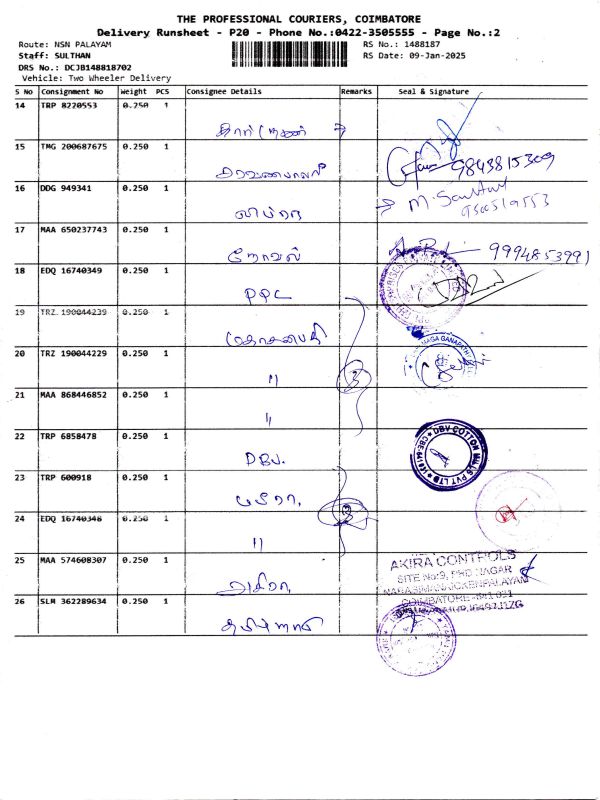 THE PROFESSIONAL COURIERS, COIMBATORE
Delivery Runsheet - P20 - Phone No.:0422-3505555 - Page No.:2
Route: NSN PALAYAM RS No.: 1488187
Staff: SULTHAN RS Date: 09-Jan-2025
DRS No.: DCJB148818702
Vehicle: Two Wheeler Delivery
S No Consignment No Weight PCS Consignee Details Remarks Seal & Signature
14 TRP 8220553 0.250 1
15 TMG 200687675 0.250 1
சரவணபாலாஜி 9843815309
16 DDG 949341 0.250 1
M. Sulthan
17 MAA 650237743 0.250 1
நோவல் 9994853991
18 EDQ 16740349 0.250 1
PPC
19 TRZ 190044239 0.250 1
20 TRZ 190044229 0.250 1
" 3
21 MAA 868446852 0.250 1
"
22 TRP 6858478 0.250 1
DBV. DBV COTTON MILLS PVT LTD
23 TRP 600918 0.250 1
24 EDQ 16740348 0.250 1
"
25 MAA 574608307 0.250 1
அகிரா, AKIRA CONTROLS
SITE No:9, PHD NAGAR
NARASIMANAICKENPALAYAM
COIMBATORE -641 031
26 SLM 362289634 0.250 1